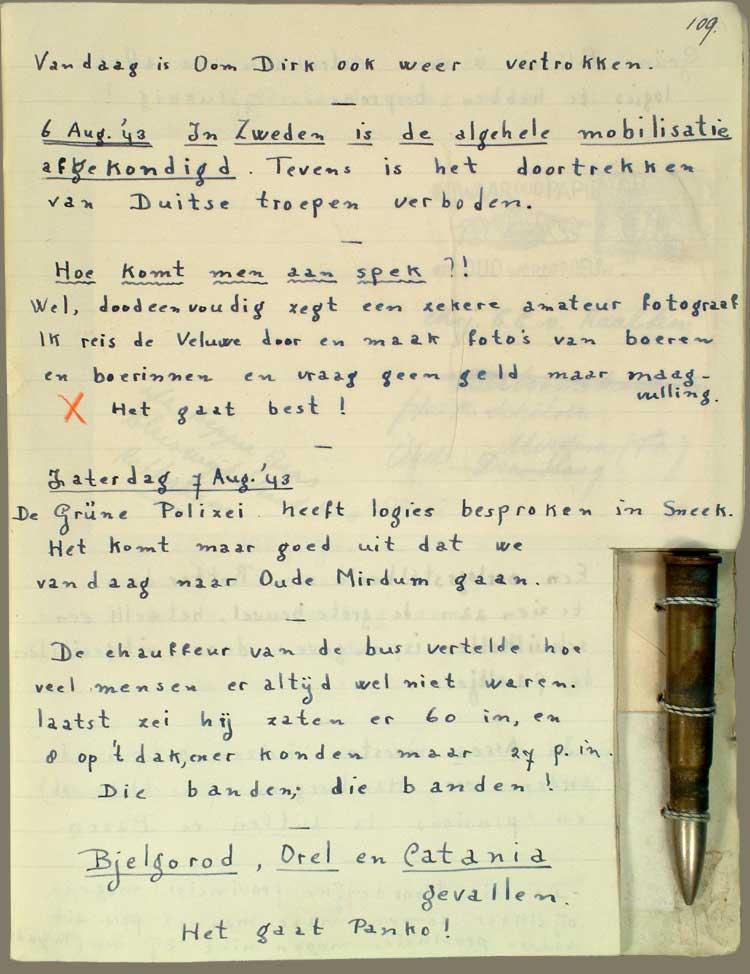 109.
Vandaag is Oom Dirk ook weer vertrokken.
6 Aug. '43 In Zweden is de algehele mobilisatie
afgekondigd. Tevens is het doortrekken
van Duitse troepen verboden.
Hoe komt men aan spek ?!
Wel, doodeenvoudig zegt een zekere amateur fotograaf
Ik reis de Veluwe door en maak foto's van boeren
en boerinnen en vraag geen geld maar maag-
vulling.
X Het gaat best !
Zaterdag 7 Aug. '43
De Grüne Polizei heeft logies besproken in Sneek.
Het komt maar goed uit dat we
vandaag naar Oude Mirdum gaan.
De chauffeur van de bus vertelde hoe
veel mensen er altijd wel niet waren.
laatst zei hij zaten er 60 in, en
8 op 't dak, en er konden maar 27 p. in.
Die banden; die banden !
Bjelgorod, Orel en Catania
gevallen.
Het gaat Panko !